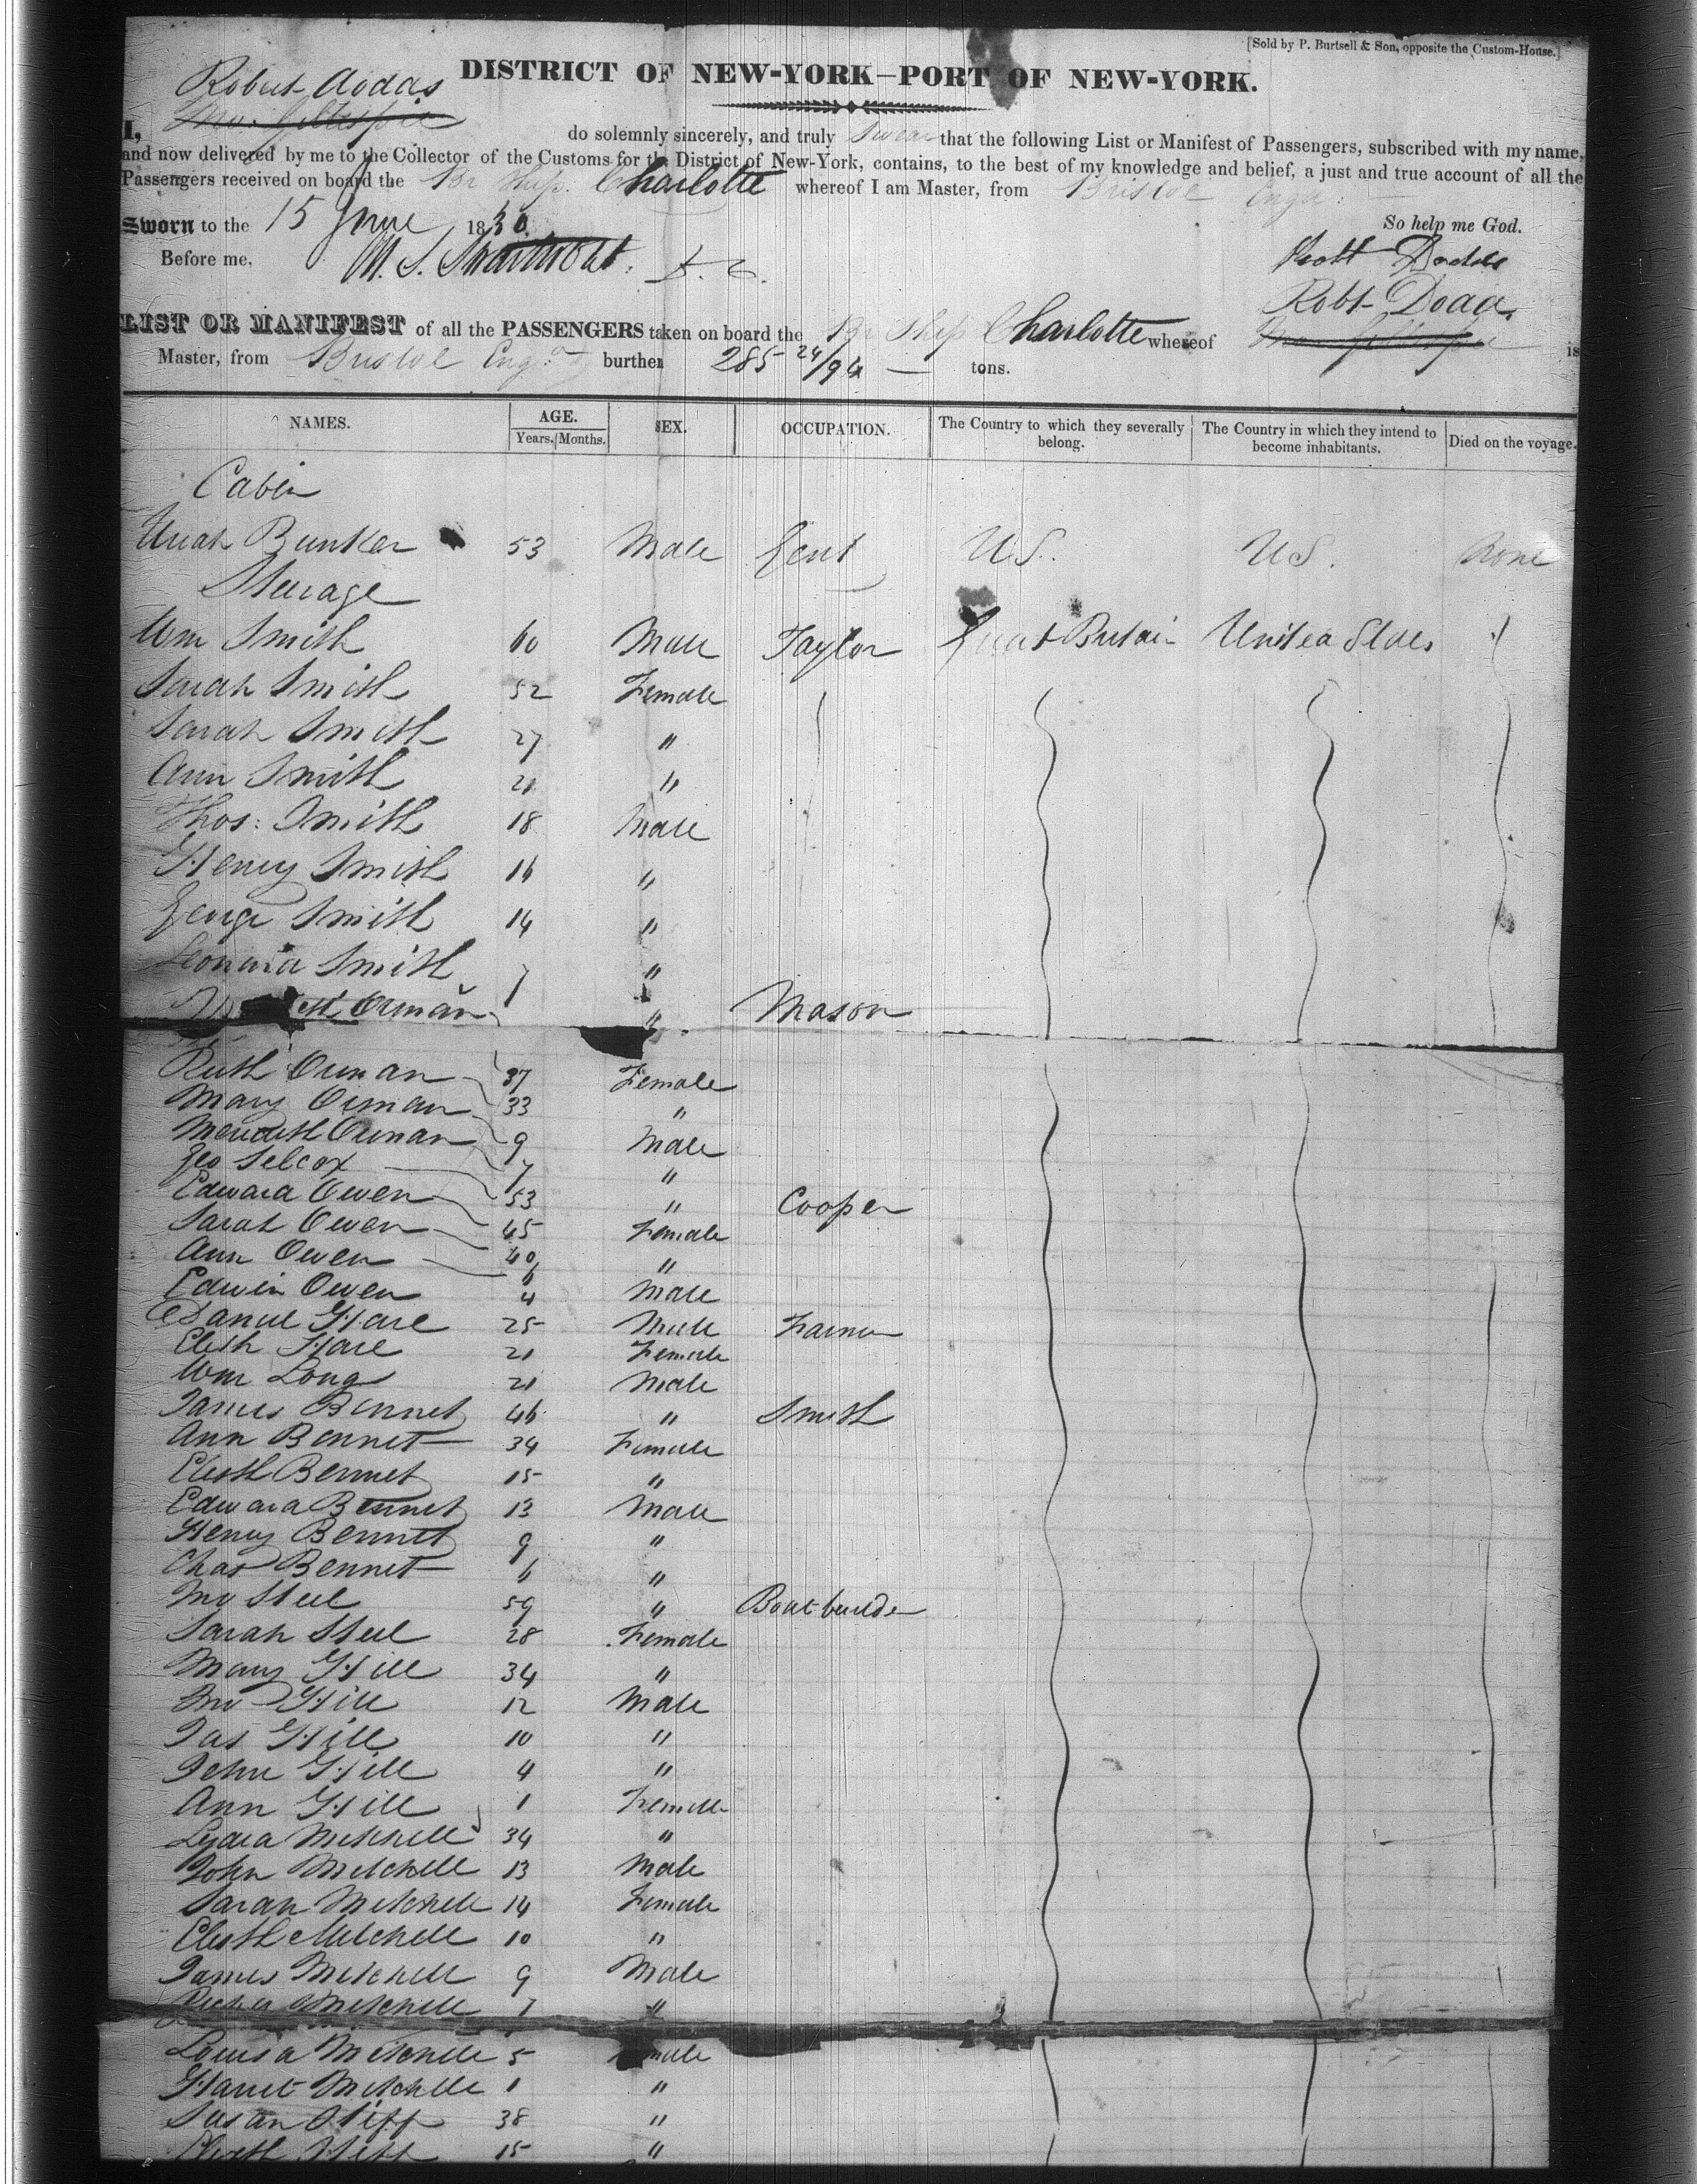 [Sold by P. Burtsell & Son, opposite the Custom-House.]
DISTRICT OF NEW-YORK—PORT OF NEW-YORK.
Robert Dodds
Jno. Gillespie
I, do solemnly sincerely, and truly swear that the following List or Manifest of Passengers, subscribed with my name,
and now delivered by me to the Collector of the Customs for the District of New-York, contains, to the best of my knowledge and belief, a just and true account of all the
Passengers received on board the Br Ship Charlotte whereof I am Master, from Bristol Engd.
Sworn to the 15 June 1830 So help me God.
Before me, M. S. Swartwout. D. C. Robt Dodds
Robt Dodd.
LIST OR MANIFEST of all the PASSENGERS taken on board the Br Ship Charlotte whereof Jno. Gillespie is
Master, from Bristol Engd burthen 285 24/94 — tons.
NAMES. AGE. Years. Months. SEX. OCCUPATION. The Country to which they severally belong. The Country in which they intend to become inhabitants. Died on the voyage.
Cabin
Uriah Bunker 53 Male Gent U S. U S. None
Steerage
Wm Smith 60 Male Taylor Great Britain United States
Sarah Smith 52 Female
Sarah Smith 27 "
Ann Smith 21 "
Thos: Smith 18 Male
Henry Smith 16 "
George Smith 14 "
Smith 7 "
Orman " Mason
Ruth Orman 37 Female
Mary Orman 33 "
Meredith Orman 9 Male
Geo Selcox 7 "
Edward Owen 53 " Cooper
Sarah Owen 45 Female
Ann Owen 40 "
6
Edwin Owen 4 Male
Daniel Hare 25 Male Farmer
Elisth Hare 21 Female
Wm Long 21 Male
James Bennet 46 " Smith
Ann Bennet 34 Female
Elisth Bennet 15 "
Edward Bennet 13 Male
Henry Bennet 9 "
Chas Bennet 6 "
Jno Steel 59 " Boatbuilder
Sarah Steel 28 Female
Mary Hill 34 "
Jno Hill 12 Male
Jas Hill 10 "
John Hill 4 "
Ann Hill 1 Female
Lydia Mitchell 34 "
John Mitchell 13 Male
Sarah Mitchell 14 Female
Elisth Mitchell 10 "
James Mitchell 9 Male
Mitchell 7 "
Louisa Mitchell 5 male
Harriet Mitchell 1 "
Susan 38 "
Elisth 15 "